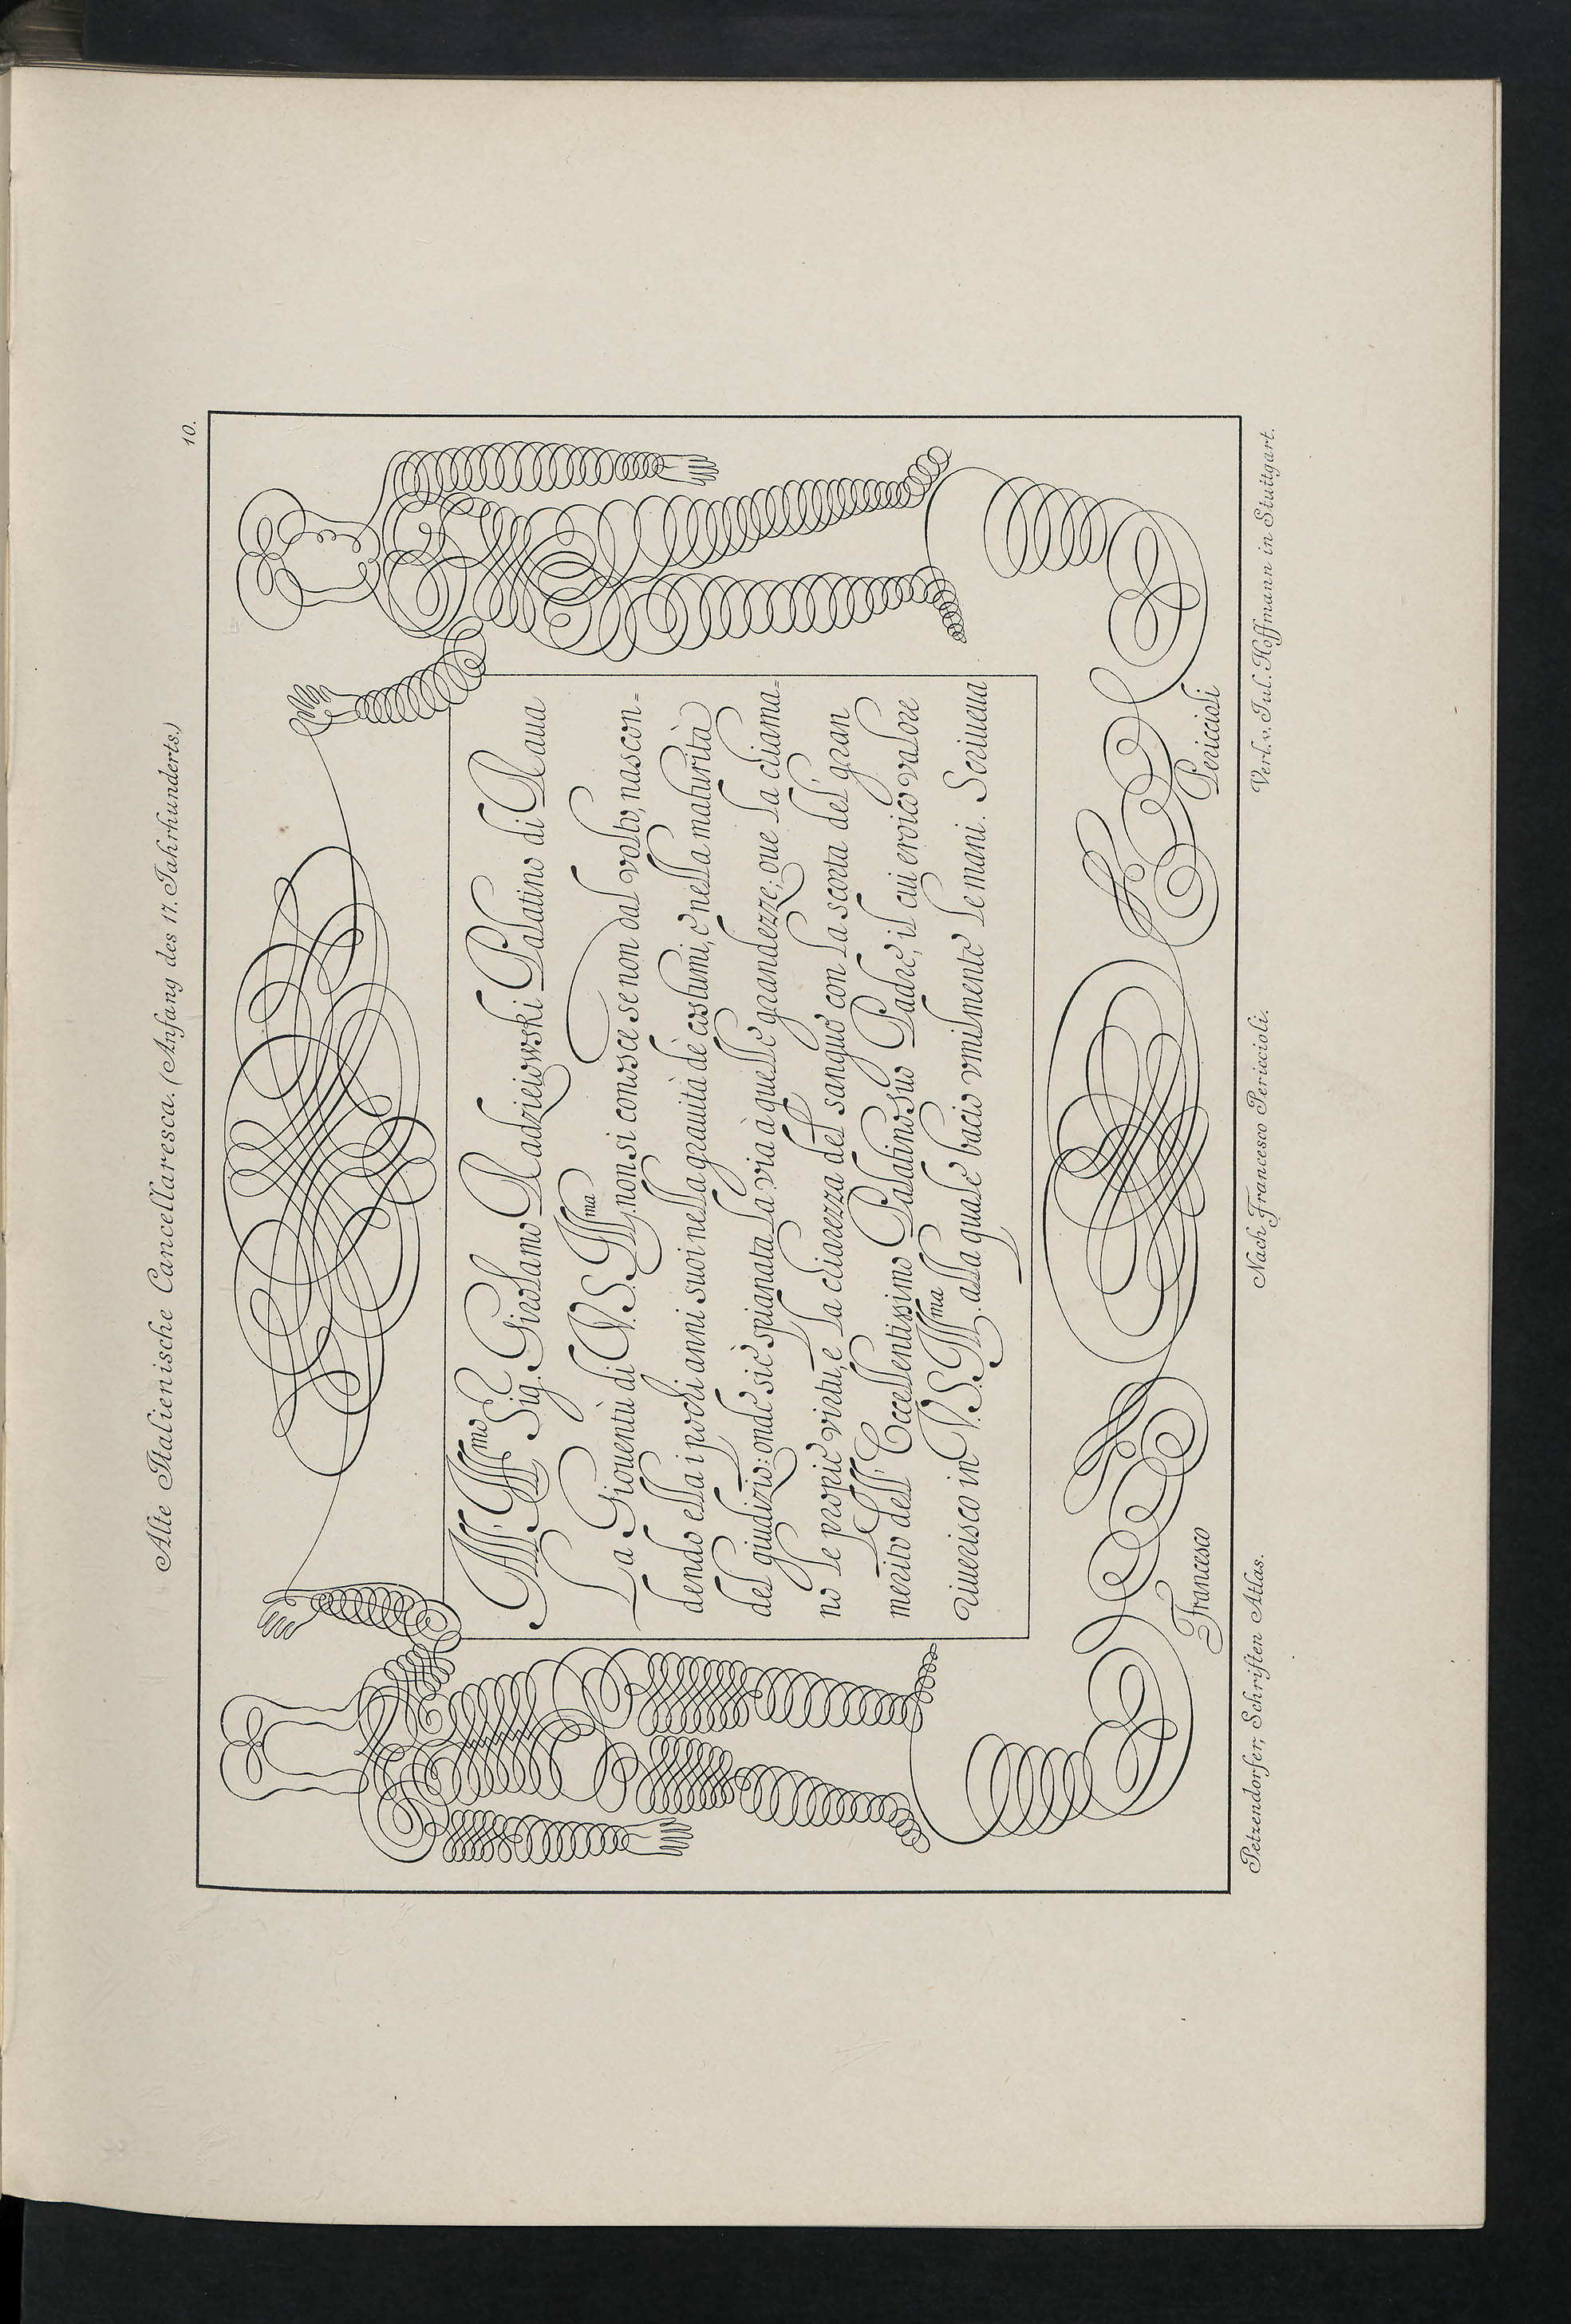 Alte Italienische Cancellaresca. (Anfang des 17. Jahrhunderts.)
10.
All' Ill.mo
Sig. Girolamo Radzieiowski Palatino di Raua
La Giouentù di V.S. Ill.ma non si conosce se non dal volto, nascon=
dendo ella i pochi anni suoi nella grauità dè costumi, e nella maturità
del giudizio: onde si è spianata la via à quelle grandezze; oue la chiama=
no le propie virtu, e la chiarezza del sangue con la scorta del gran
merito dell' Eccellentissimo Palatino suo Padre, il cui eroico valore
riuerisco in V.S. Ill.ma alla quale bacio vmilmente le mani. Scriueua
Francesco Periccioli
Petzendorfer, Schriften Atlas.
Nach Francesco Periccioli.
Verl. v. Jul. Hoffmann in Stuttgart.